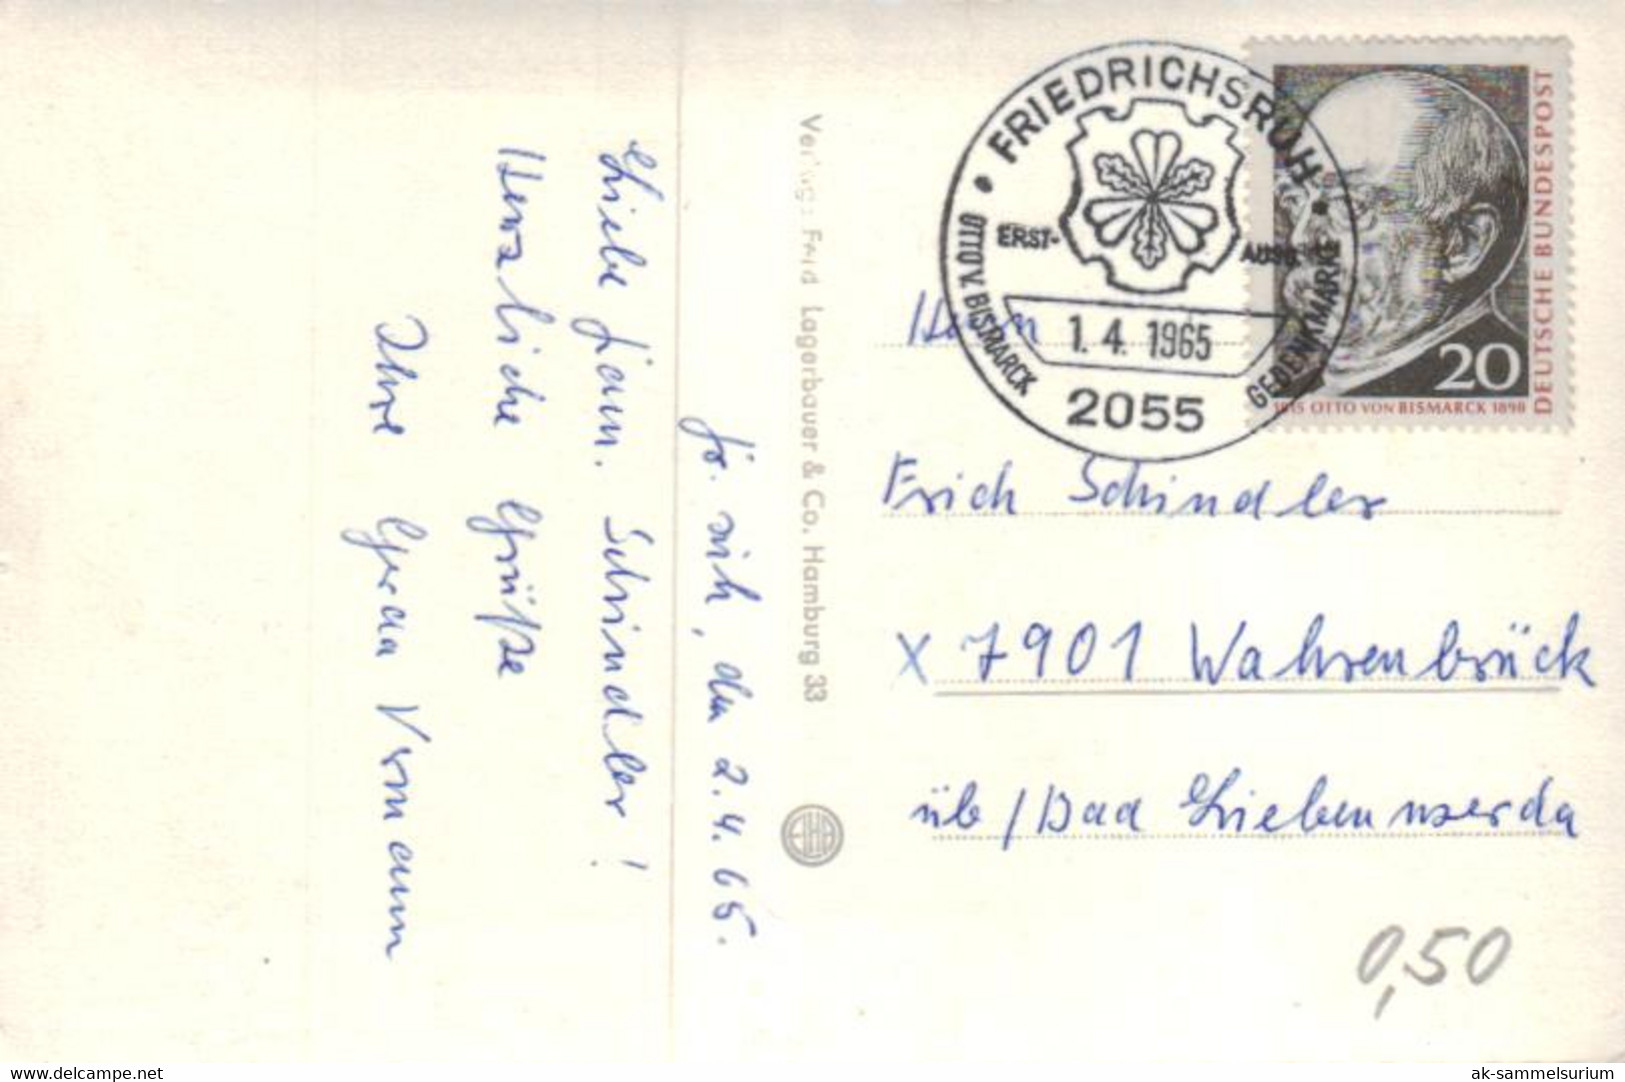 den 2.4.65.
Liebe Fam. Schindler!
Herzliche Grüße
Ihre Gerda
Verlag: Ferd. Lagerbauer & Co. Hamburg 33
FRIEDRICHSRUH
ERST-
AUSG.
OTTO V. BISMARCK
GEDENKMARKE
1.4.1965
2055
DEUTSCHE BUNDESPOST
20
1815 OTTO VON BISMARCK 1898
Herrn
Erich Schindler
X 7901 Wahrenbrück
üb/Bad Liebenwerda
0,50
www.delcampe.net
ak-sammelsurium